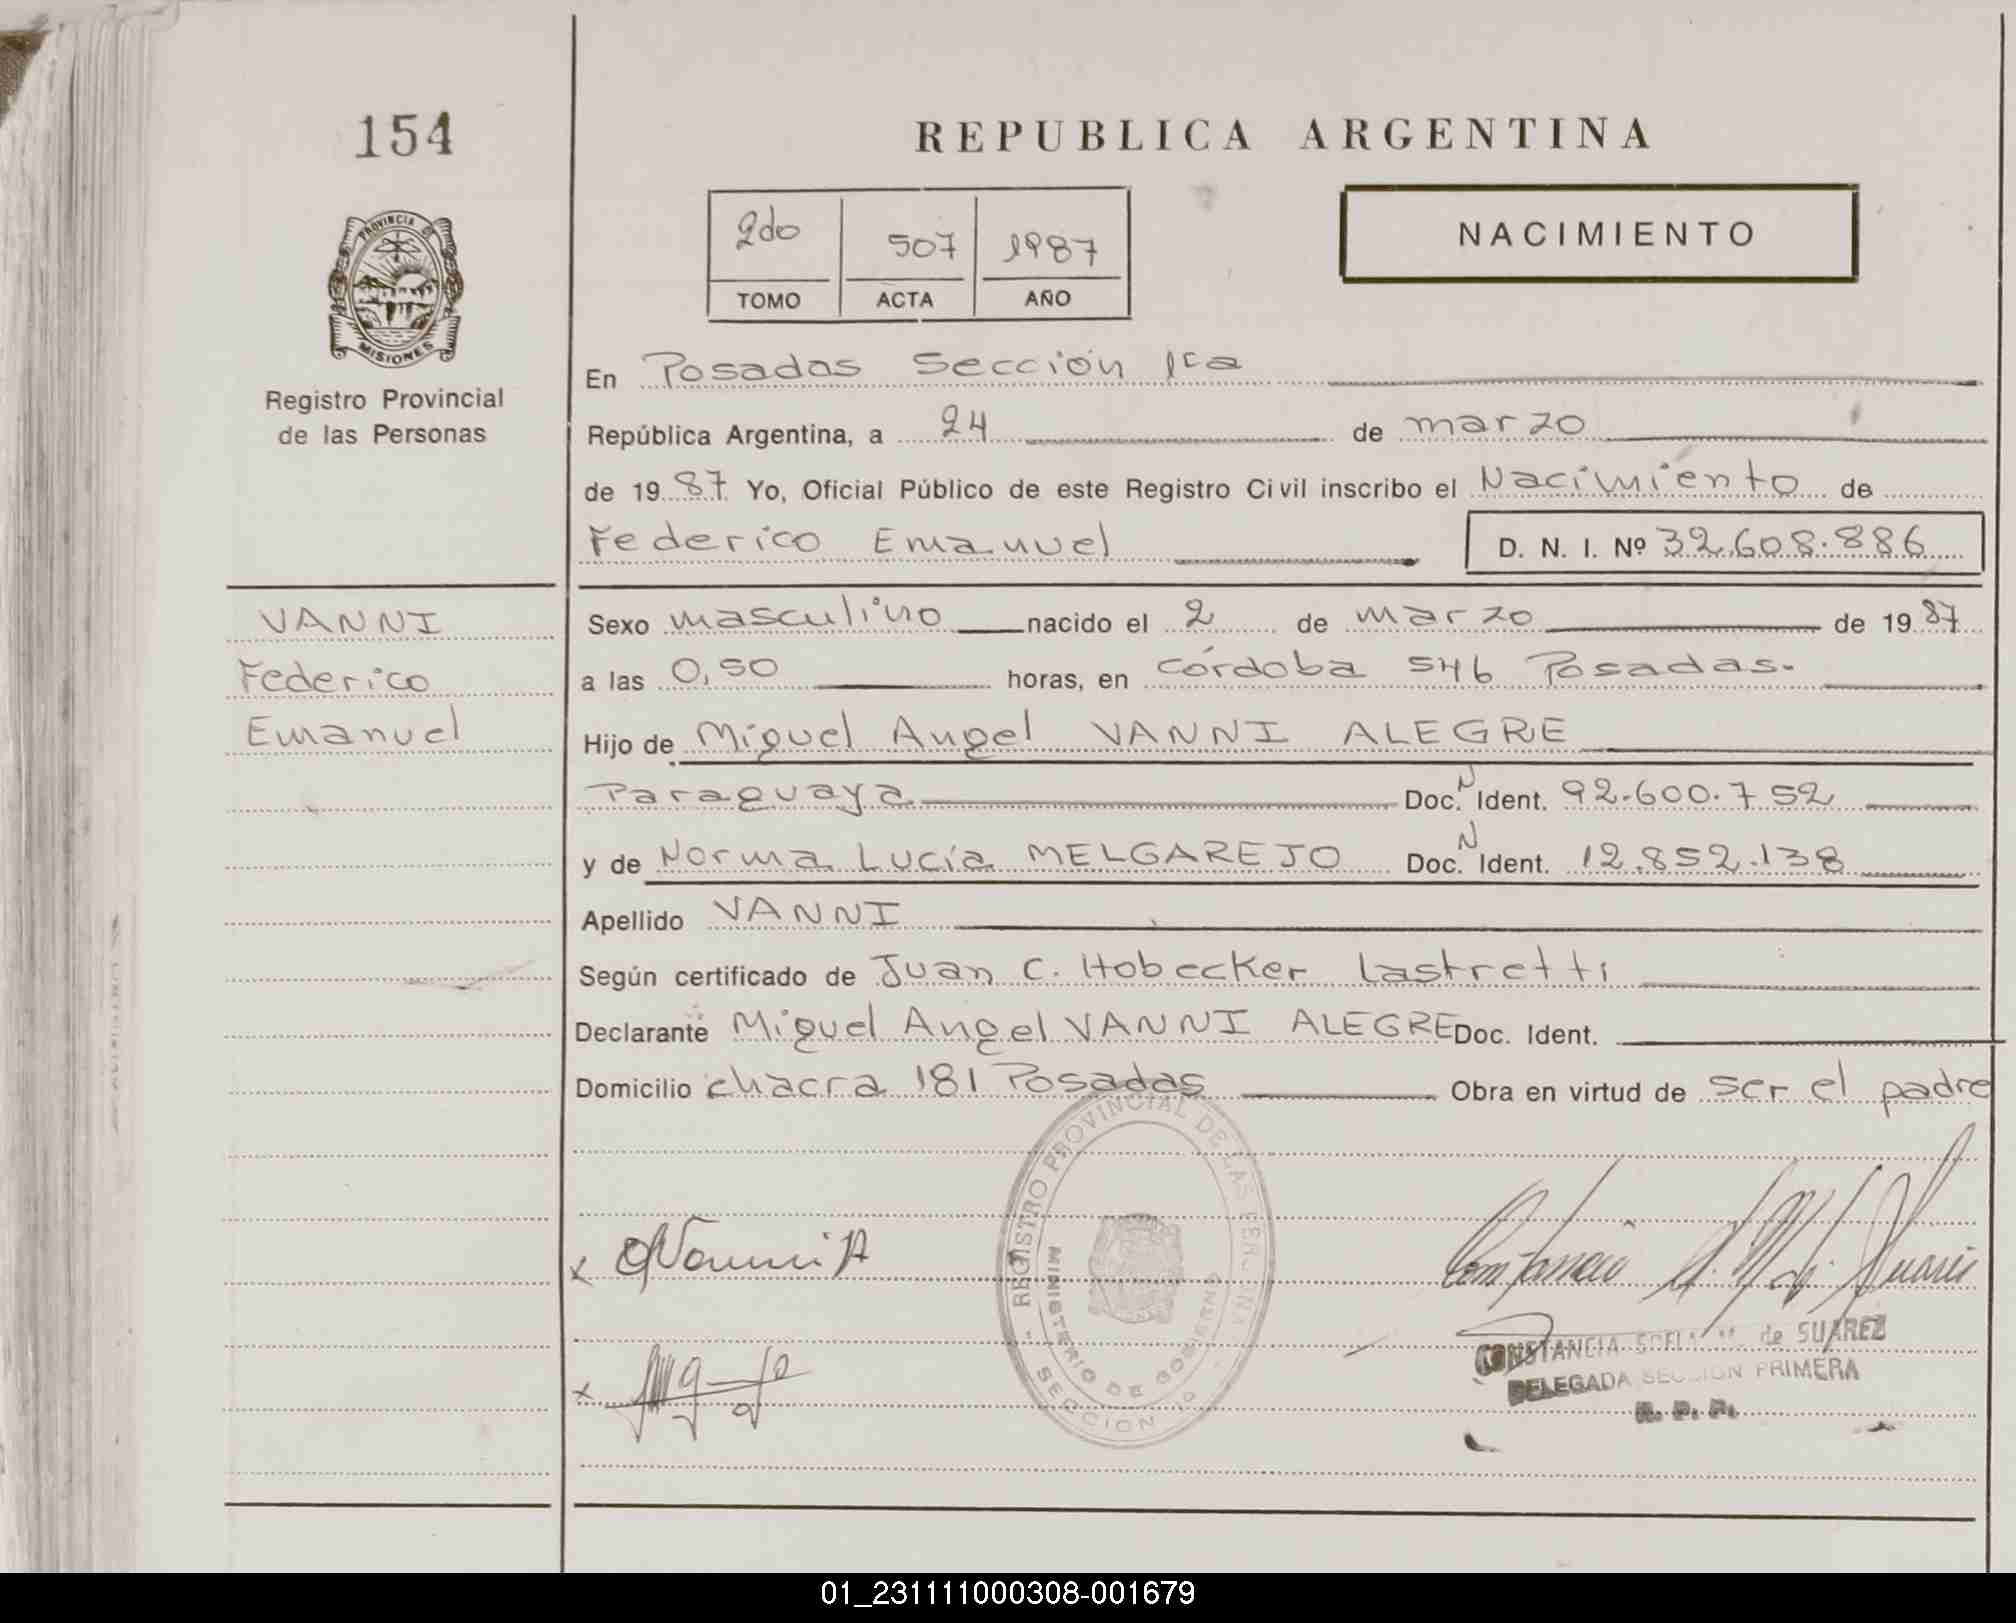 154
REPUBLICA ARGENTINA
PROVINCIA D
MISIONES
Registro Provincial
de las Personas
2do 507 1987
TOMO ACTA AÑO
NACIMIENTO
En Posadas Sección 1ra
República Argentina, a 24 de marzo
de 1987 Yo, Oficial Público de este Registro Civil inscribo el Nacimiento de
Federico Emanuel D. N. I. Nº 32.608.886
VANNI
Federico
Emanuel
Sexo masculino nacido el 2 de marzo de 1987
a las 0,50 horas, en córdoba 546 Posadas.
Hijo de Miguel Angel VANNI ALEGRE
Paraguaya Doc. N Ident. 92.600.752
y de Norma Lucía MELGAREJO Doc. N Ident. 12.852.138
Apellido VANNI
Según certificado de Juan C. Hobecker Lastretti
Declarante Miguel Angel VANNI ALEGRE Doc. Ident.
Domicilio chacra 181 Posadas Obra en virtud de ser el padre
REGISTRO PROVINCIAL DE LAS PERSONAS
MINISTERIO DE GOBIERNO
SECCION 1º
x Vanni A
x
CONSTANCIA de SUAREZ
DELEGADA SECCION PRIMERA
R. P. P.
01_231111000308-001679